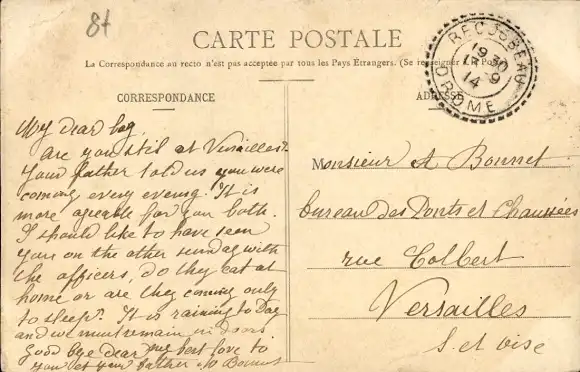 8t
CARTE POSTALE
La Correspondance au recto n'est pas acceptée par tous les Pays Étrangers. (Se renseigner à la Poste)
CORRESPONDANCE
ADRESSE
RECOUBEAU
19 30
14 9
DROME
My dear boy,
are you stil at Versailles?
Your father told us you were
coming every evenig. It is
more agreable for you both.
I should like to have seen
you on the other sunday with
the officers, do they eat at
home or are they coming only
to sleep? It is raining to Day
and we must remain in doors
Good bye dear my best love to
you et your father
Monsieur A Bonnet
bureau des Ponts et Chaussées
rue Colbert
Versailles
S. et Oise